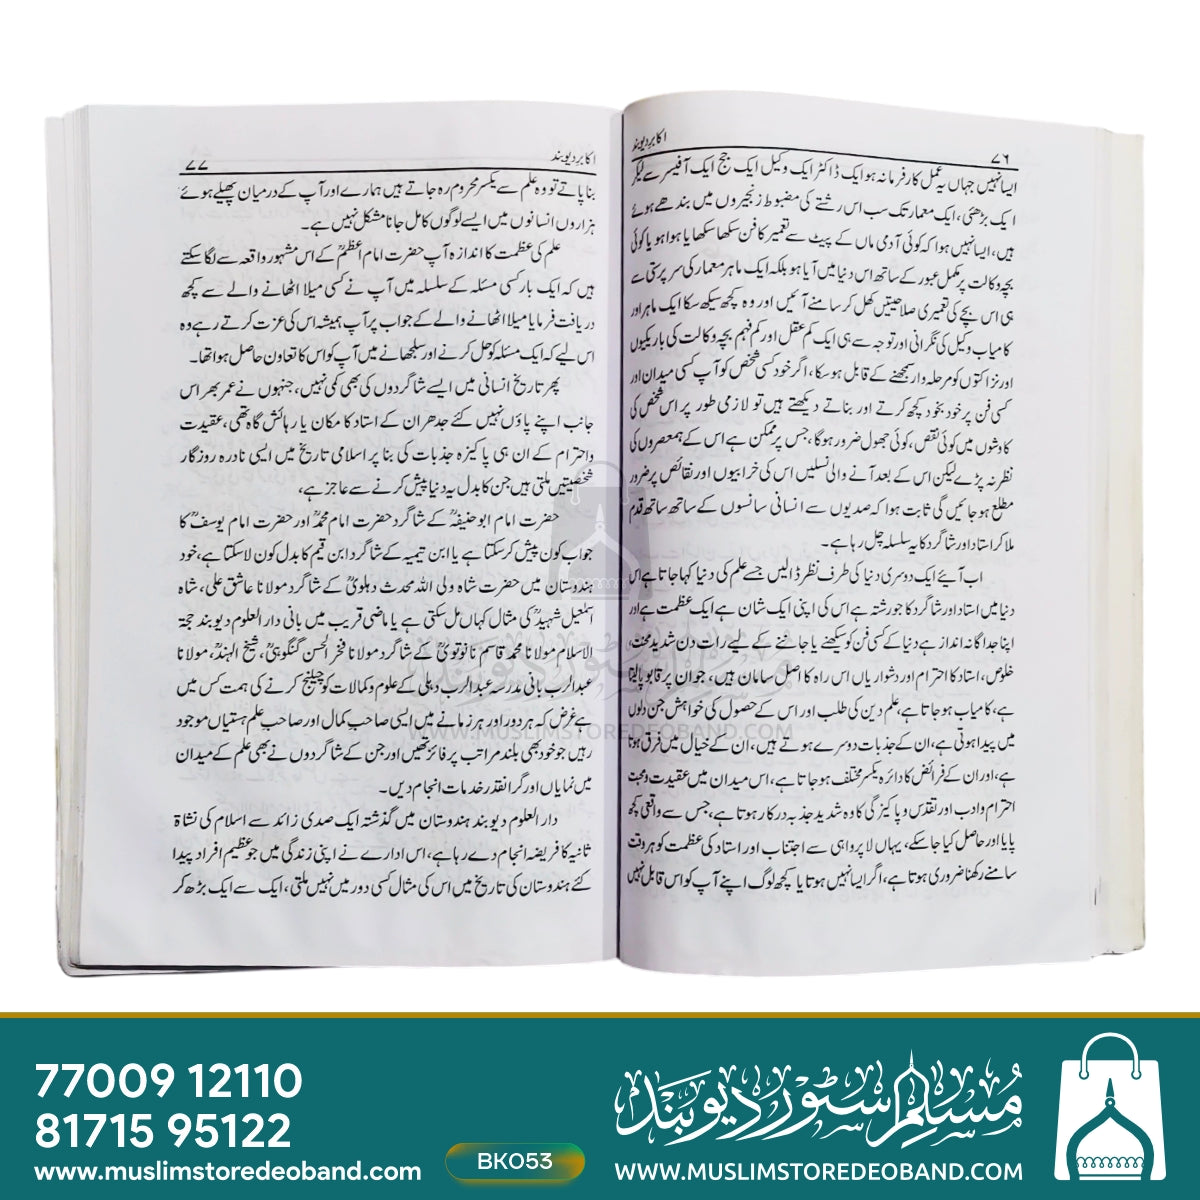 ۷۶
اکابر دیوبند
ایسا نہیں جہاں یہ عمل کار فرما نہ ہو ایک ڈاکٹر ایک وکیل ایک جج ایک آفیسر سے لیکر
ایک بڑھئی، ایک معمار تک سب اس رشتے کی مضبوط زنجیروں میں بندھے ہوئے
ہیں، ایسا نہیں ہوا کہ کوئی آدمی ماں کے پیٹ سے تعمیر کا فن سکھا سکھایا ہوا ہو یا کوئی
بچہ وکالت پر مکمل عبور کے ساتھ اس دنیا میں آیا ہو بلکہ ایک ماہر معمار کی سرپرستی سے
ہی اس بچے کی تعمیری صلاحیتیں کھل کر سامنے آئیں اور وہ کچھ سیکھ سکا ایک ماہر اور
کامیاب وکیل کی نگرانی اور توجہ سے ہی ایک کم عقل اور کم فہم بچہ وکالت کی باریکیوں
اور نزاکتوں کو مرحلہ وار سمجھنے کے قابل ہو سکا، اگر خود کسی شخص کو آپ کسی میدان اور
کسی فن پر خود بخود کچھ کرتے اور بناتے دیکھتے ہیں تو لازمی طور پر اس شخص کی
کاوشوں میں کوئی نقص، کوئی جھول ضرور ہوگا، جس پر ممکن ہے اس کے ہمعصروں کی
نظر نہ پڑے لیکن اس کے بعد آنے والی نسلیں اس کی خرابیوں اور نقائص پر ضرور
مطلع ہو جائیں گی ثابت ہوا کہ صدیوں سے انسانی سانسوں کے ساتھ ساتھ قدم
ملا کر استاد اور شاگرد کا یہ سلسلہ چل رہا ہے۔
اب آیئے ایک دوسری دنیا کی طرف نظر ڈالیں جسے علم کی دنیا کہا جاتا ہے اس
دنیا میں استاد اور شاگرد کا جو رشتہ ہے اس کی اپنی ایک شان ہے ایک عظمت ہے اور
اپنا جداگانہ انداز ہے دنیا کے کسی فن کو سیکھنے یا جاننے کے لیے رات دن شدید محنت،
خلوص، استاد کا احترام اور دشواریاں اس راہ کا اصل سامان ہیں، جو ان پر قابو پالیتا
ہے، کامیاب ہو جاتا ہے، علم دین کی طلب اور اس کے حصول کی خواہش جن دلوں
میں پیدا ہوتی ہے، ان کے جذبات دوسرے ہوتے ہیں، ان کے خیال میں فرق ہوتا
ہے، اور ان کے فرائض کا دائرہ یکسر مختلف ہو جاتا ہے، اس میدان میں عقیدت و محبت
احترام و ادب اور تقدس و پاکیزگی کا وہ شدید جذبہ درکار ہوتا ہے، جس سے واقعی کچھ
پایا اور حاصل کیا جا سکے، یہاں لاپرواہی سے اجتناب اور استاد کی عظمت کو ہر وقت
سامنے رکھنا ضروری ہوتا ہے، اگر ایسا نہیں ہوتا یا کچھ لوگ اپنے آپ کو اس قابل نہیں
اکابر دیوبند
۷۷
بنا پاتے تو وہ علم سے یکسر محروم رہ جاتے ہیں ہمارے اور آپ کے درمیان پھیلے ہوئے
ہزاروں انسانوں میں ایسے لوگوں کا مل جانا مشکل نہیں ہے۔
علم کی عظمت کا اندازہ آپ حضرت امام اعظمؒ کے اس مشہور واقعہ سے لگا سکتے
ہیں کہ ایک بار کسی مسئلہ کے سلسلہ میں آپ نے کسی میلا اٹھانے والے سے کچھ
دریافت فرمایا میلا اٹھانے والے کے جواب پر آپ ہمیشہ اس کی عزت کرتے رہے وہ
اس لیے کہ ایک مسئلہ کو حل کرنے اور سلجھانے میں آپ کو اس کا تعاون حاصل ہوا تھا۔
پھر تاریخ انسانی میں ایسے شاگردوں کی بھی کمی نہیں، جنہوں نے عمر بھر اس
جانب اپنے پاؤں نہیں کئے جدھر ان کے استاد کا مکان یا رہائش گاہ تھی، عقیدت
و احترام کے ان ہی پاکیزہ جذبات کی بنا پر اسلامی تاریخ میں ایسی نادرہ روزگار
شخصیتیں ملتی ہیں جن کا بدل یہ دنیا پیش کرنے سے عاجز ہے،
حضرت امام ابو حنیفہؒ کے شاگرد حضرت امام محمدؒ اور حضرت امام یوسفؒ کا
جواب کون پیش کر سکتا ہے یا ابن تیمیہ کے شاگرد ابن قیم کا بدل کون لا سکتا ہے، خود
ہندوستان میں حضرت شاہ ولی اللہ محدث دہلویؒ کے شاگرد مولانا عاشق علی، شاہ
اسمٰعیل شہیدؒ کی مثال کہاں مل سکتی ہے یا ماضی قریب میں بانی دار العلوم دیوبند حجۃ
الاسلام مولانا محمد قاسم نانوتویؒ کے شاگرد مولانا فخر الحسن گنگوہیؒ، شیخ الہندؒ، مولانا
عبد الرب بانی مدرسہ عبد الرب دہلی کے علوم و کمالات کو چیلنج کرنے کی ہمت کس میں
ہے غرض کہ ہر دور اور ہر زمانے میں ایسی صاحب کمال اور صاحب علم ہستیاں موجود
رہیں جو خود بھی بلند مراتب پر فائز تھیں اور جن کے شاگردوں نے بھی علم کے میدان
میں نمایاں اور گرانقدر خدمات انجام دیں۔
دار العلوم دیوبند ہندوستان میں گذشتہ ایک صدی زائد سے اسلام کی نشاۃ
ثانیہ کا فریضہ انجام دے رہا ہے، اس ادارے نے اپنی زندگی میں جو عظیم افراد پیدا
کئے ہندوستان کی تاریخ میں اس کی مثال کسی دور میں نہیں ملتی، ایک سے ایک بڑھ کر
مسلم سٹور دیوبند
WWW.MUSLIMSTOREDEOBAND.COM
77009 12110
81715 95122
www.muslimstoredeoband.com
BK053
مسلم سٹور دیوبند
WWW.MUSLIMSTOREDEOBAND.COM